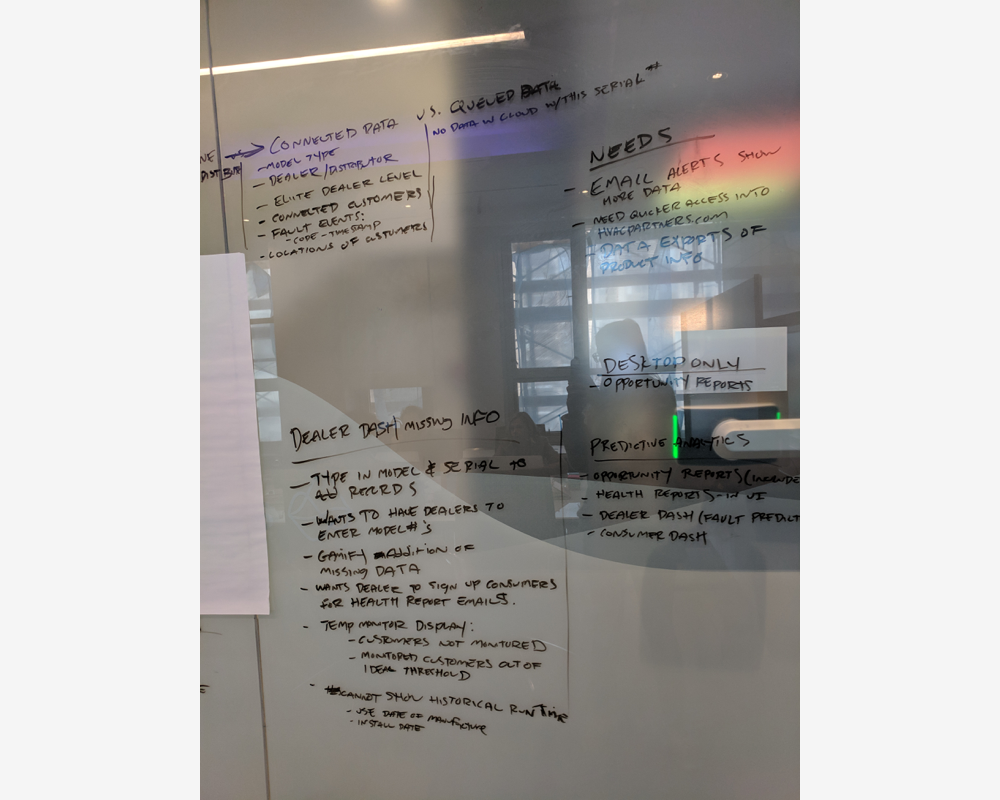 CONNECTED DATA VS. QUEUED DATA
NO DATA IN CLOUD W/THIS SERIAL #
NE
DISTRIBUT
- MODEL TYPE
- DEALER/DISTRIBUTOR
- ELITE DEALER LEVEL
- CONNECTED CUSTOMERS
- FAULT EVENTS:
- CODE - TIMESTAMP
- LOCATIONS OF CUSTUMERS
NEEDS
- EMAIL ALERTS SHOW
MORE DATA
- NEED QUICKER ACCESS INTO
HVACPARTNERS.COM
- DATA EXPORTS OF
PRODUCT INFO
DESKTOP ONLY
- OPPORTUNITY REPORTS
DEALER DASH MISSING INFO
- TYPE IN MODEL & SERIAL TO
ADD RECORDS
- WANTS TO HAVE DEALERS TO
ENTER MODEL#'S
- GAMIFY ADDITION OF
MISSING DATA
- WANTS DEALER TO SIGN UP CONSUMERS
FOR HEALTH REPORT EMAILS.
- TEMP MONITOR DISPLAY:
- CUSTOMERS NOT MONITORED
- MONITORED CUSTOMERS OUT OF
IDEAL THRESHOLD
- CANNOT SHOW HISTORICAL RUNTIME
- USE DATE OF MANUFACTURE
- INSTALL DATE
PREDICTIVE ANALYTICS
- OPPORTUNITY REPORTS (INCLUDE
- HEALTH REPORTS - IN UI
- DEALER DASH (FAULT PREDICT
- CONSUMER DASH